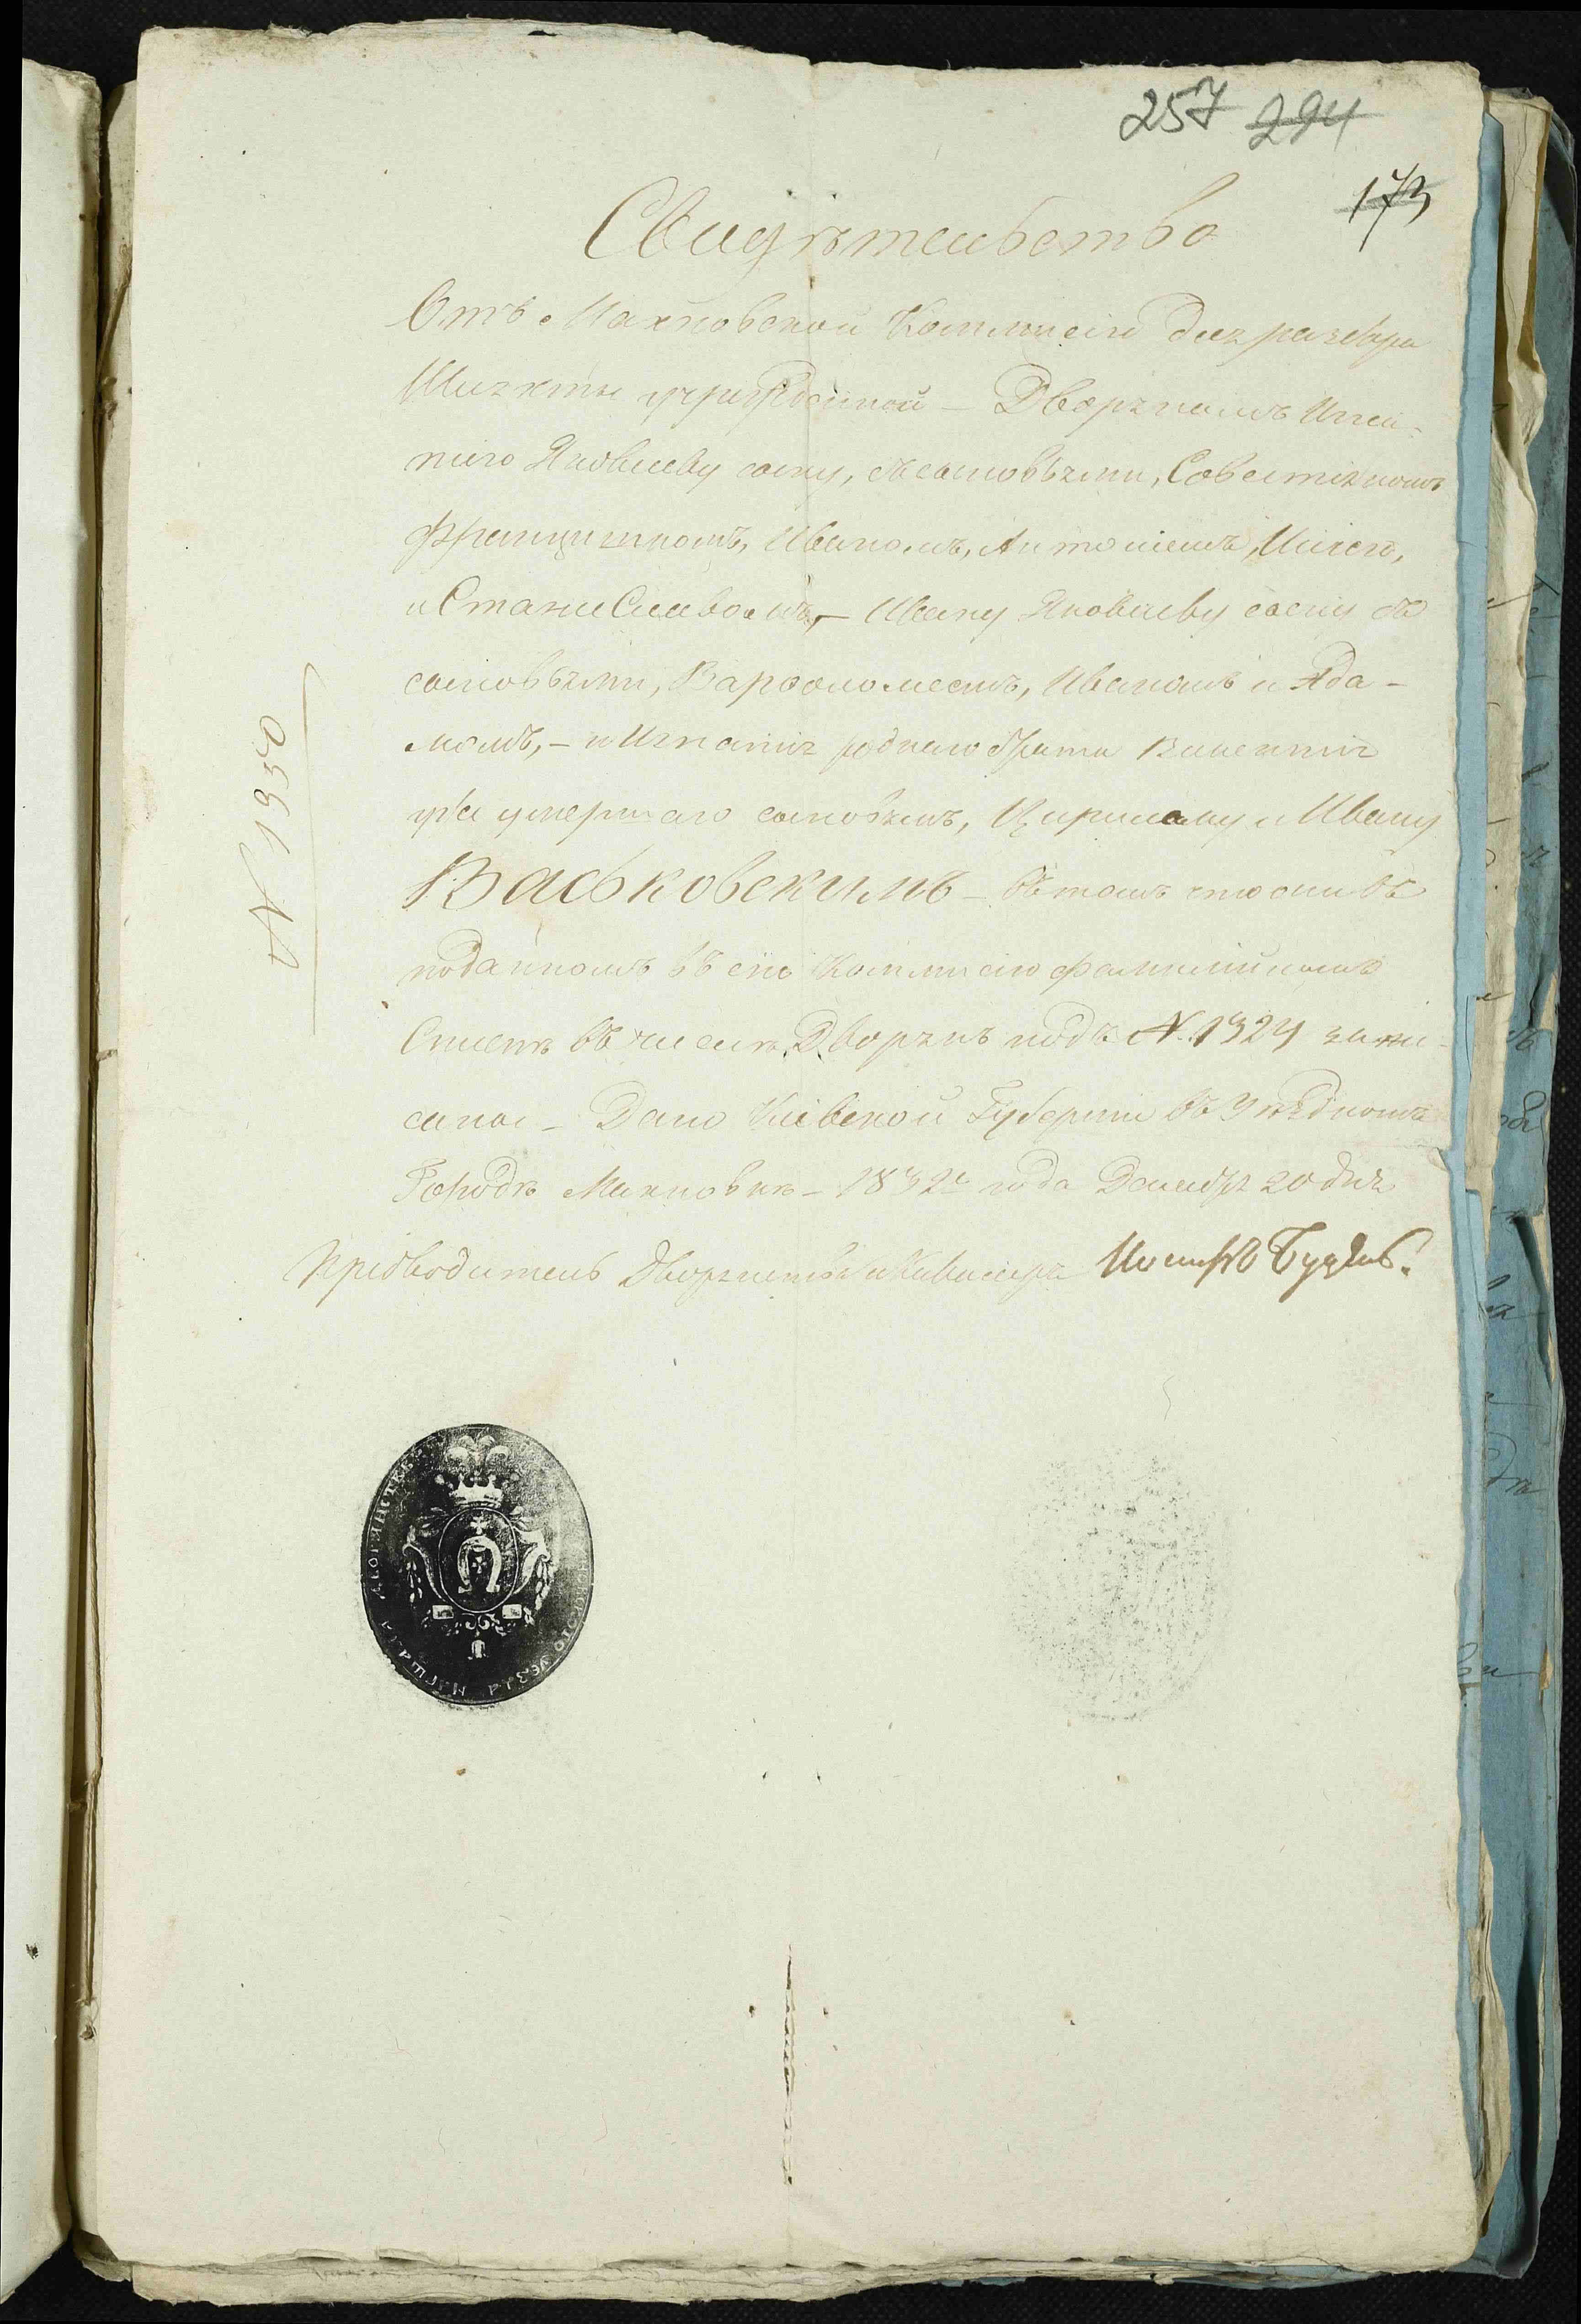 257 294
173
Свидѣтельство
Отъ Махновской Коммисіи для разбора
Шляхты учрежденной – Дворянамъ Игна-
тію Яковлеву сыну, съ сыновьями,
Францишкомъ, Иваномъ, Антоніемъ,
и Станиславомъ, – Ивану Яковлеву сыну съ
сыновьями, Варфоломеемъ, Иваномъ и Ада-
момъ, – и Игнатія роднаго брата Викентія
уже умершаго сыновьямъ, и Ивану
Васьковскимъ – въ томъ что они въ
поданномъ въ сію Коммисію фамилійномъ
Спискѣ въ числѣ Дворянъ подъ N. 1324 запи-
саны – Дано Кіевской Губерніи въ Уѣздномъ
Городѣ Махновкѣ – 1832го года Декабря 20 дня
Предводитель Дворянства и Кавалеръ Іосифъ
N 1950